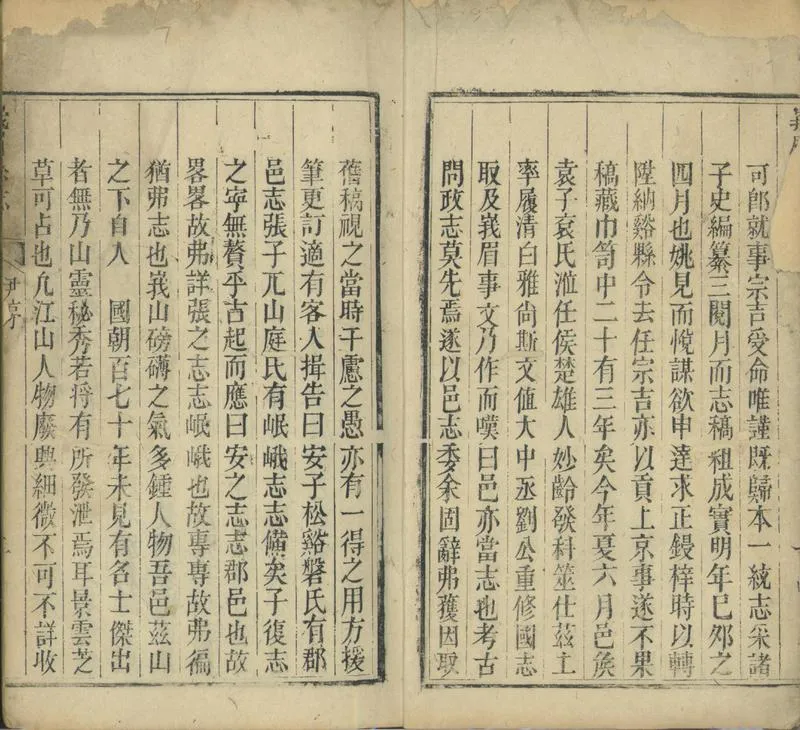 可郎就事宗吉受命唯謹旣歸本一統志采諸
子史編纂三閱月而志稿粗成實明年巳夘之
四月也姚見而悅謀欲申達求正鋟梓時以轉
陞納谿縣令去任宗吉亦以貢上京事遂不果
稿藏巾笥中二十有三年矣今年夏六月邑矦
袁子衮氏涖任侯楚雄人妙齡發科筮仕茲土
率履清白雅尙斯文値大中丞劉公重修國志
取及峩眉事文乃作而嘆曰邑亦當志也考古
問政志莫先焉遂以邑志委余固辭弗獲因取
舊稿視之當時千慮之愚亦有一得之用方援
筆更訂適有客人揖告曰安子松谿磐氏有郡
邑志張子兀山庭氏有岷峨志志備矣子復志
之寧無贅乎古起而應曰安之志志郡邑也故
畧畧故弗詳張之志志岷峨也故專專故弗徧
猶弗志也峩山磅礴之氣多鍾人物吾邑茲山
之下自入　國朝百七十年未見有名士傑出
者無乃山靈秘秀若將有所發泄焉耳景雲芝
草可占也凢江山人物廢興細微不可不詳收